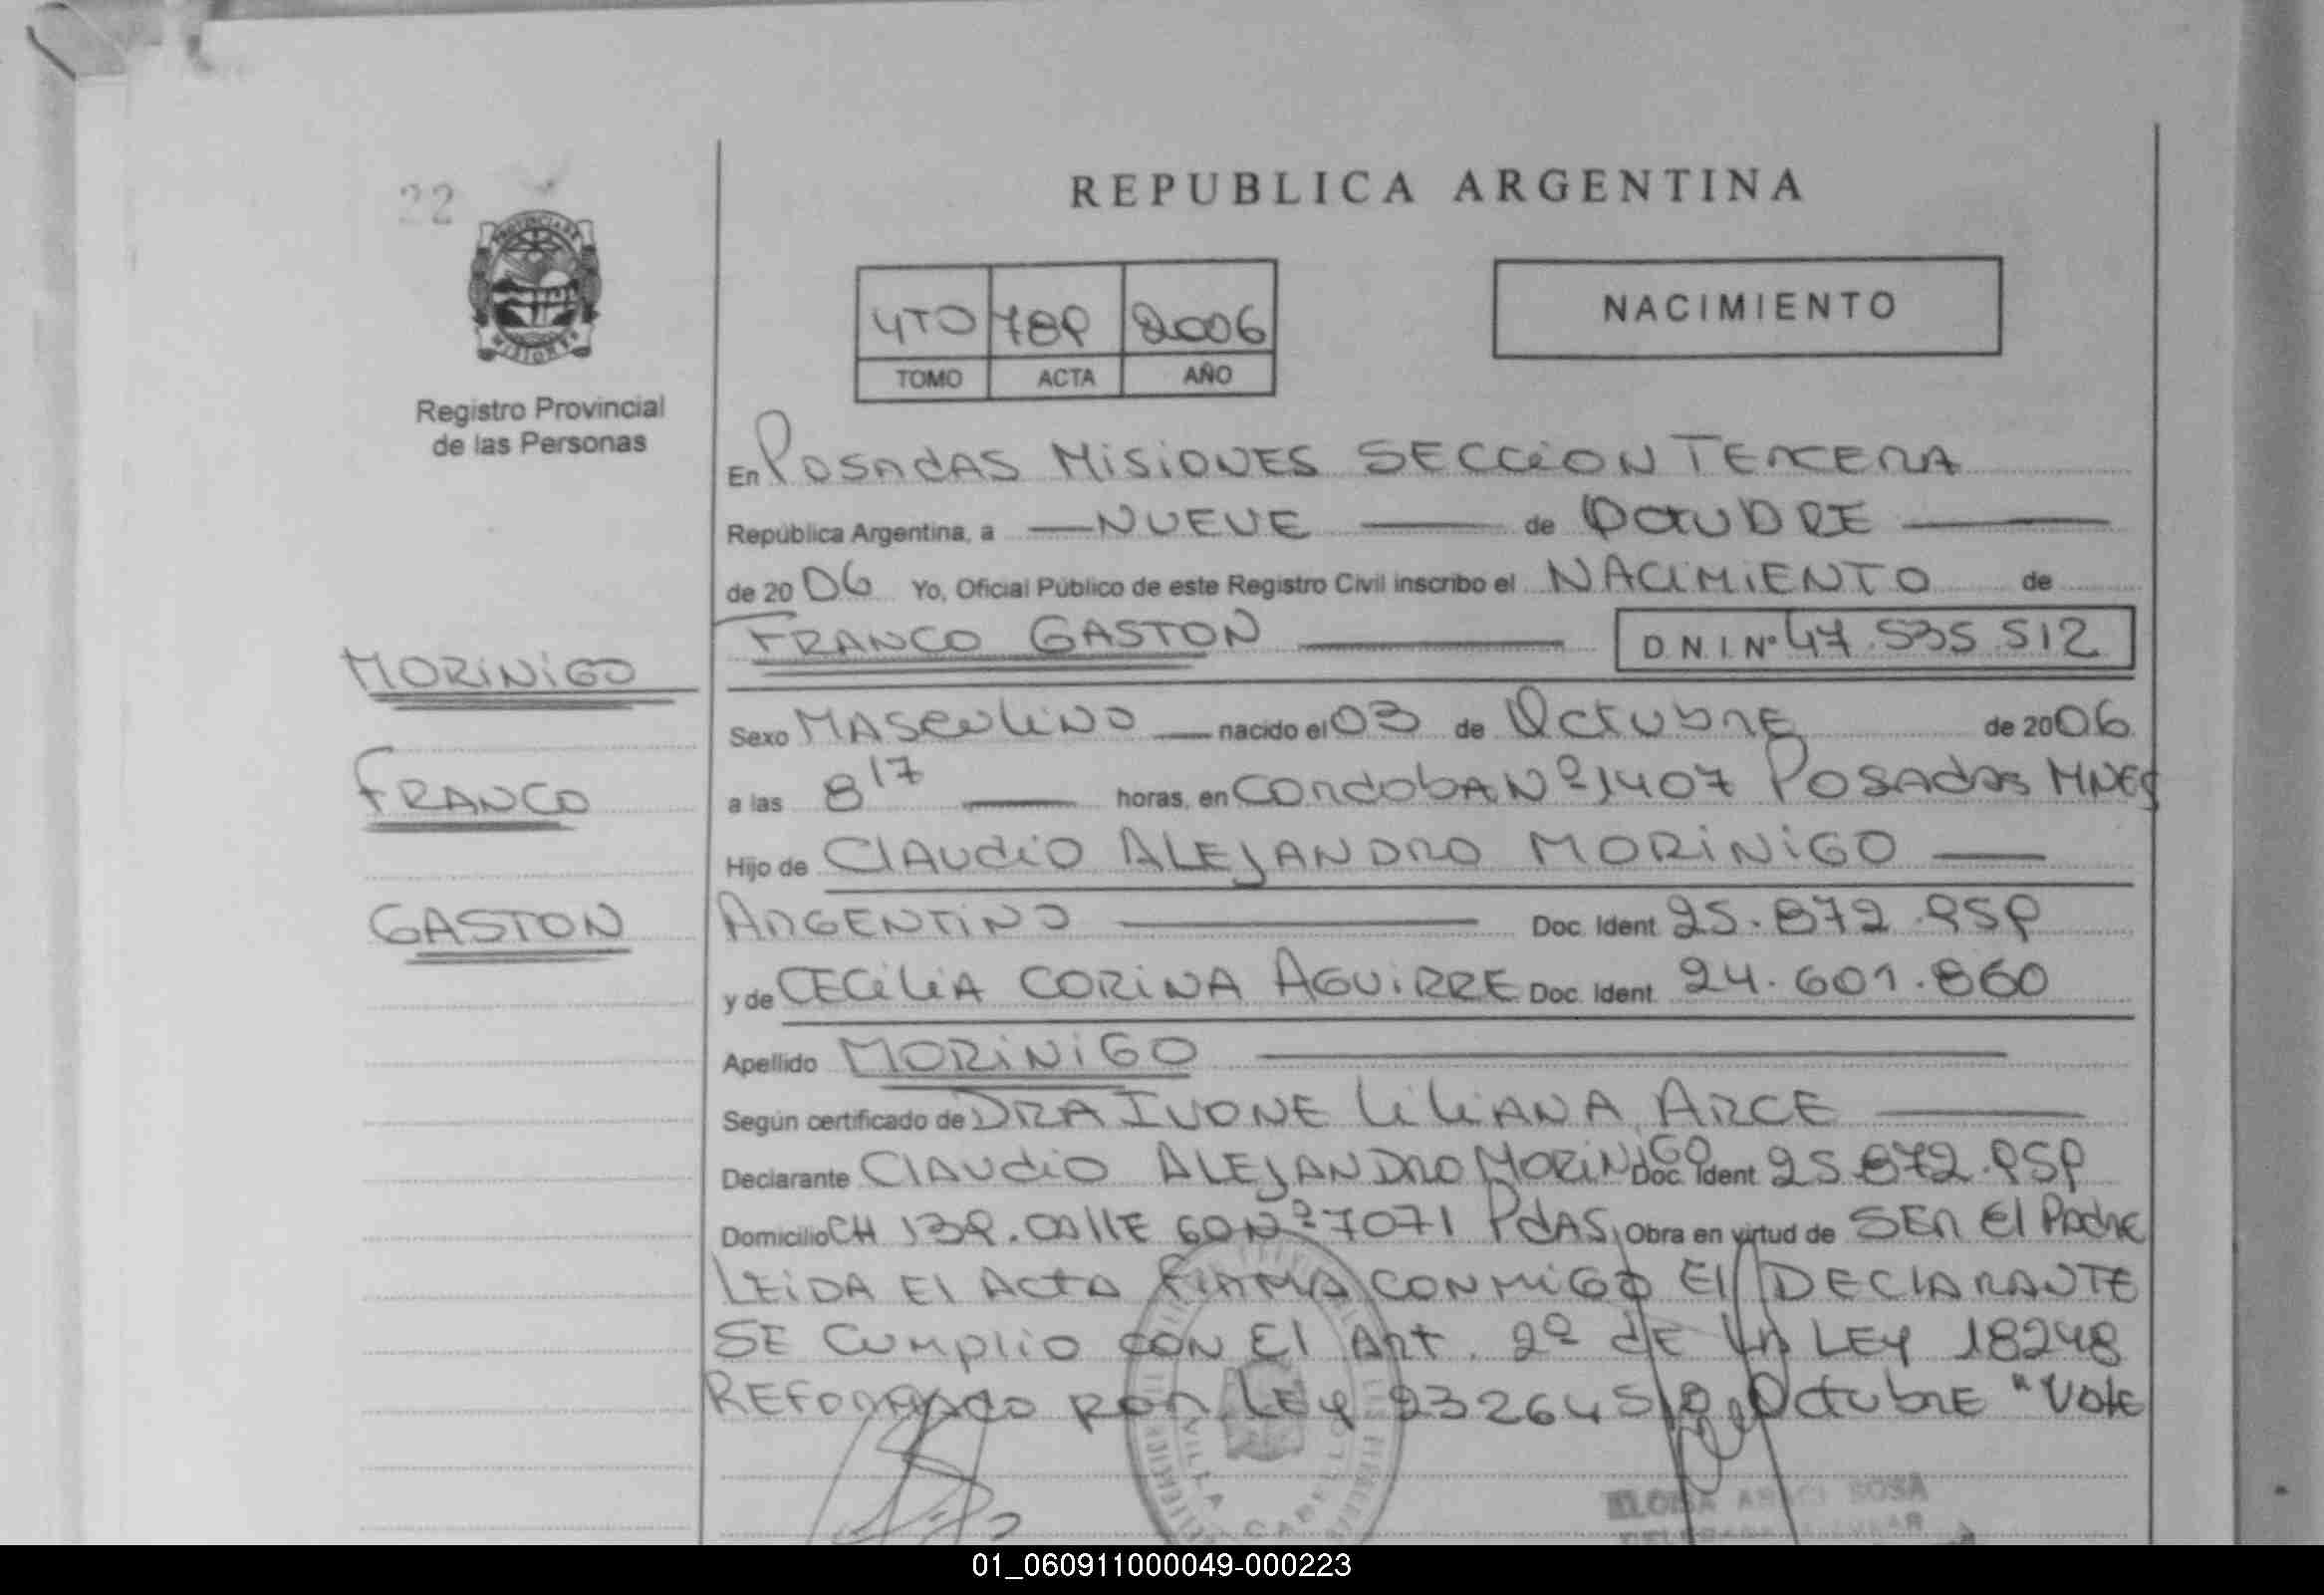 22
REPUBLICA ARGENTINA
PROVINCIA DE MISIONES
Registro Provincial
de las Personas
4TO 789 2006
TOMO ACTA AÑO
NACIMIENTO
En POSADAS MISIONES SECCION TERCERA
República Argentina, a NUEVE de OCTUBRE
de 2006 Yo, Oficial Público de este Registro Civil inscribo el NACIMIENTO de
FRANCO GASTON D.N.I. Nº 47.535.512
MORINIGO
FRANCO
GASTON
Sexo MASCULINO nacido el 03 de Octubre de 2006
a las 8 17 horas, en CORDOBA Nº 1407 POSADAS MNES
Hijo de CLAUDIO ALEJANDRO MORINIGO
ARGENTINO Doc. Ident. 25.872.959
y de CECILIA CORINA AGUIRRE Doc. Ident. 24.601.860
Apellido MORINIGO
Según certificado de DRA IVONE LILIANA ARCE
Declarante CLAUDIO ALEJANDRO MORINIGO Doc. Ident 25.872.959
Domicilio CH 139. CALLE 60 Nº 7071 PDAS. Obra en virtud de SER El Padre
LEIDA El ACTA FIRMA CONMIGO El DECLARANTE
SE CUMPLIO CON El ART. 2º de LA LEY 18248
REFORMADO POR LEY 23264 S/R Octubre "Vale
VILLA CABELLO
ELOISA SOSA
01_060911000049-000223